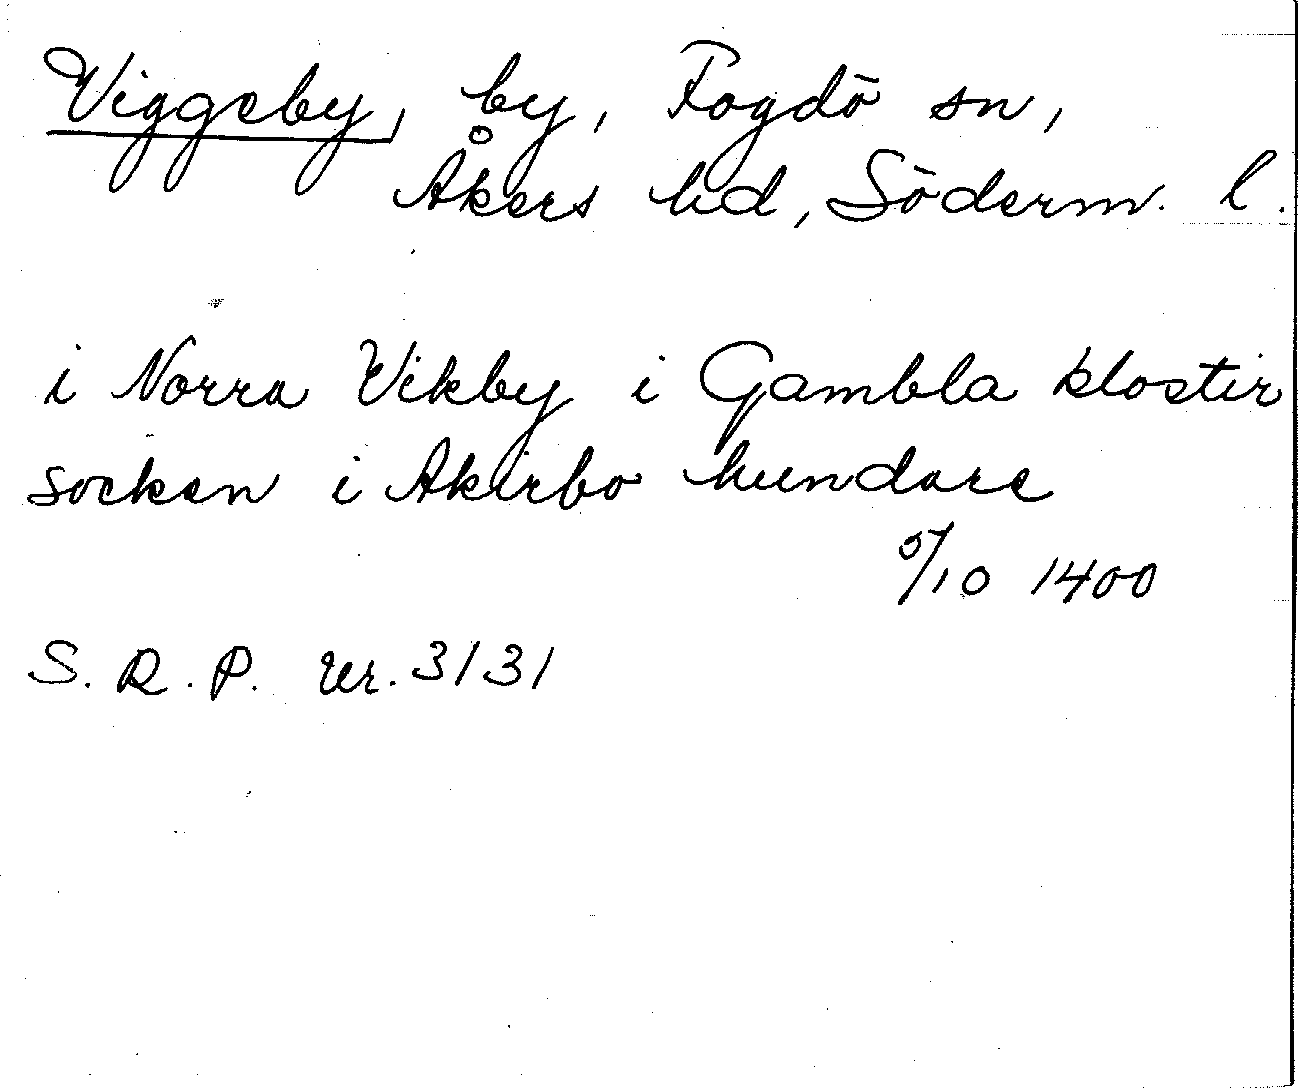 Viggeby, by, Fogdö sn,
Åkers hd, Söderm. l.
i Norra Vikby i Gambla klostir
socken i Akirbo hundare
5/10 1400
S. R. P. nr. 3131